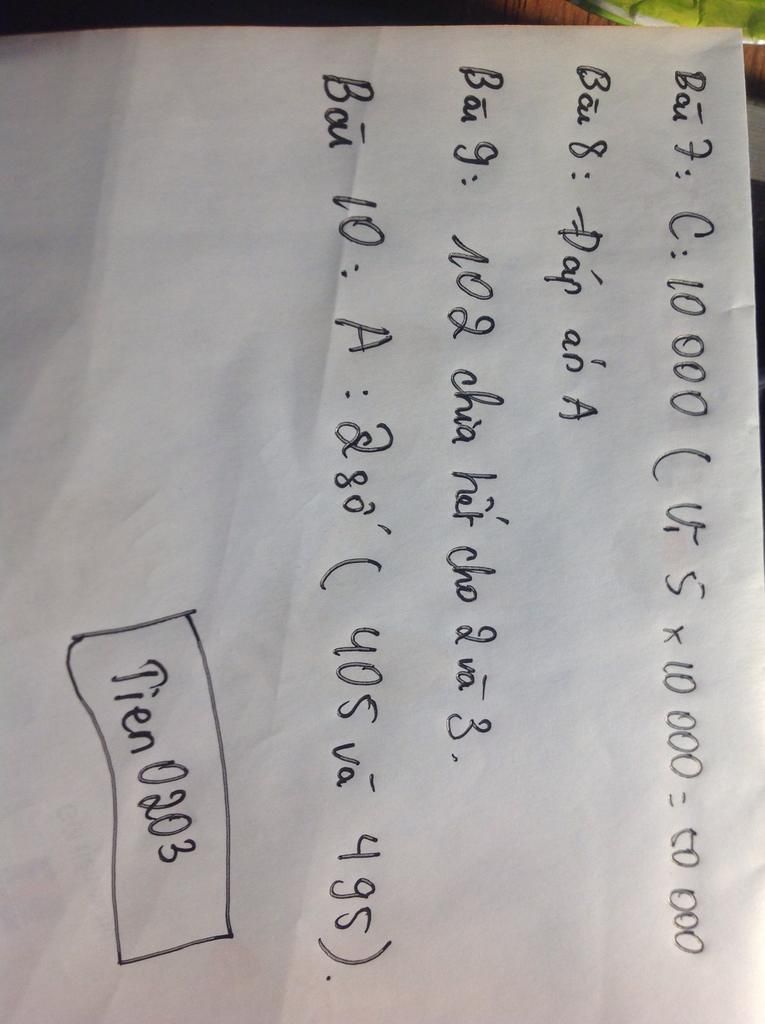 Bài 7: C: 10 000 ( Vì 5 x 10 000 = 50 000
Bài 8: Đáp án A
Bài 9: 102 chia hết cho 2 và 3.
Bài 10: A: 2 số ( 405 và 495).
Tien0203